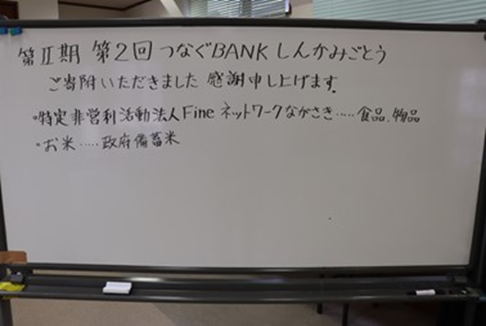 第Ⅱ期 第2回 つなぐBANKしんかみごとう
ご寄附いただきました 感謝申し上げます。
・特定非営利活動法人Fineネットワークながさき‥‥‥食品、物品
・お米‥‥‥政府備蓄米